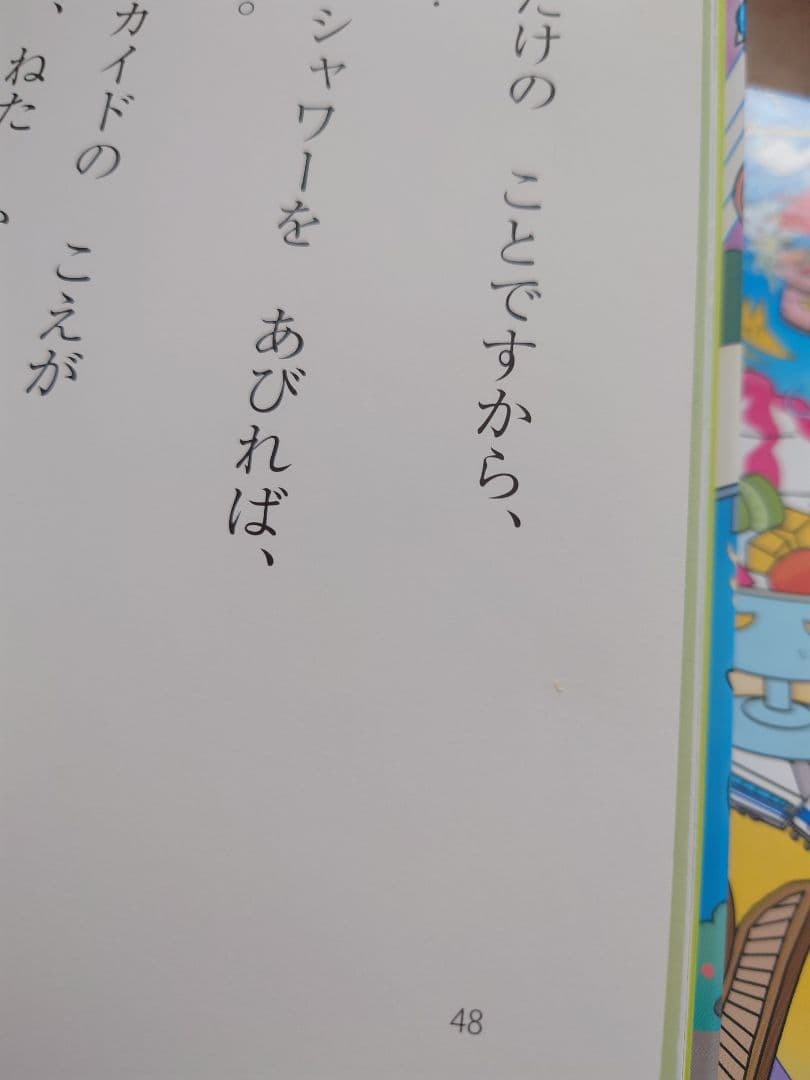 だけの ことですから、
シャワーを あびれば、
。
カイドの こえが
、ねた
48